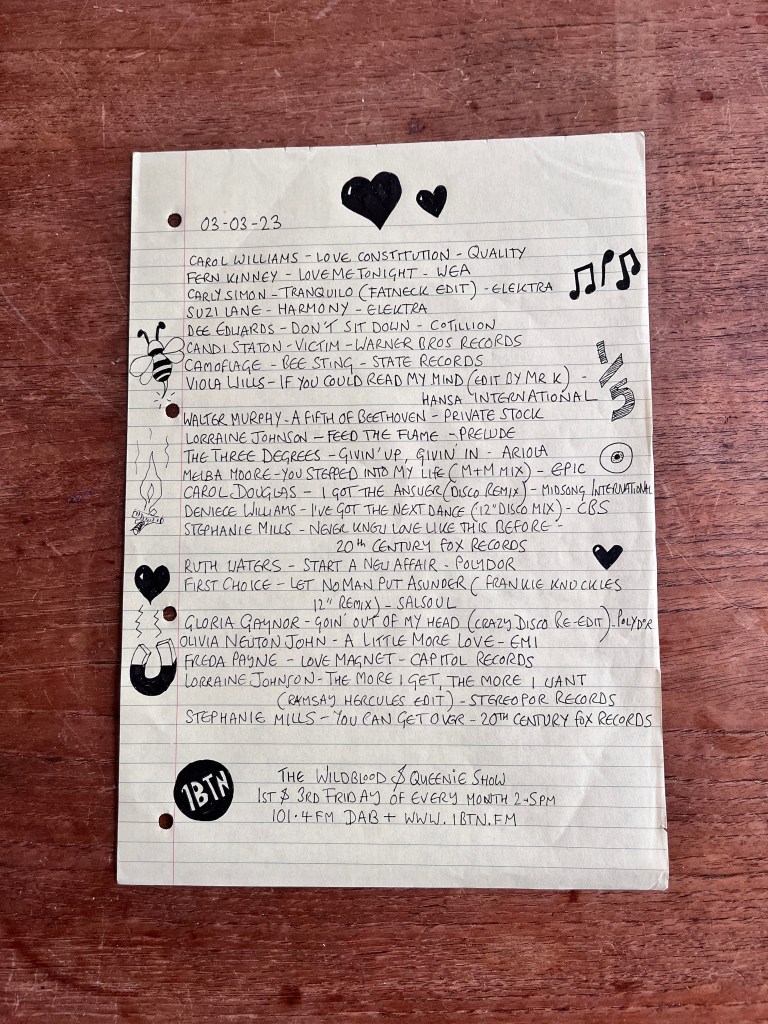 03-03-23
CAROL WILLIAMS - LOVE CONSTITUTION - QUALITY
FERN KINNEY - LOVE ME TONIGHT - WEA
CARLY SIMON - TRANQUILO (FATNECK EDIT) - ELEKTRA
SUZI LANE - HARMONY - ELEKTRA
DEE EDWARDS - DON'T SIT DOWN - COTILLION
CANDI STATON - VICTIM - WARNER BROS RECORDS
CAMOFLAGE - BEE STING - STATE RECORDS
VIOLA WILLS - IF YOU COULD READ MY MIND (EDIT BY MR K) -
HANSA INTERNATIONAL
1/5
WALTER MURPHY - A FIFTH OF BEETHOVEN - PRIVATE STOCK
LORRAINE JOHNSON - FEED THE FLAME - PRELUDE
THE THREE DEGREES - GIVIN' UP, GIVIN' IN - ARIOLA
MELBA MOORE - YOU STEPPED INTO MY LIFE (M+M MIX) - EPIC
CAROL DOUGLAS - I GOT THE ANSWER (DISCO REMIX) - MIDSONG INTERNATIONAL
DENIECE WILLIAMS - I'VE GOT THE NEXT DANCE (12" DISCO MIX) - CBS
STEPHANIE MILLS - NEVER KNEW LOVE LIKE THIS BEFORE -
20th CENTURY FOX RECORDS
RUTH WATERS - START A NEW AFFAIR - POLYDOR
FIRST CHOICE - LET NO MAN PUT ASUNDER (FRANKIE KNUCKLES
12" REMIX) - SALSOUL
GLORIA GAYNOR - GOIN' OUT OF MY HEAD (CRAZY DISCO RE-EDIT) - POLYDOR
OLIVIA NEWTON JOHN - A LITTLE MORE LOVE - EMI
FREDA PAYNE - LOVE MAGNET - CAPITOL RECORDS
LORRAINE JOHNSON - THE MORE I GET, THE MORE I WANT
(RAMSAY HERCULES EDIT) - STEREOPOR RECORDS
STEPHANIE MILLS - YOU CAN GET OVER - 20TH CENTURY FOX RECORDS
1BTN
THE WILDBLOOD & QUEENIE SHOW
1ST & 3RD FRIDAY OF EVERY MONTH 2-5PM
101.4FM DAB+ WWW.1BTN.FM